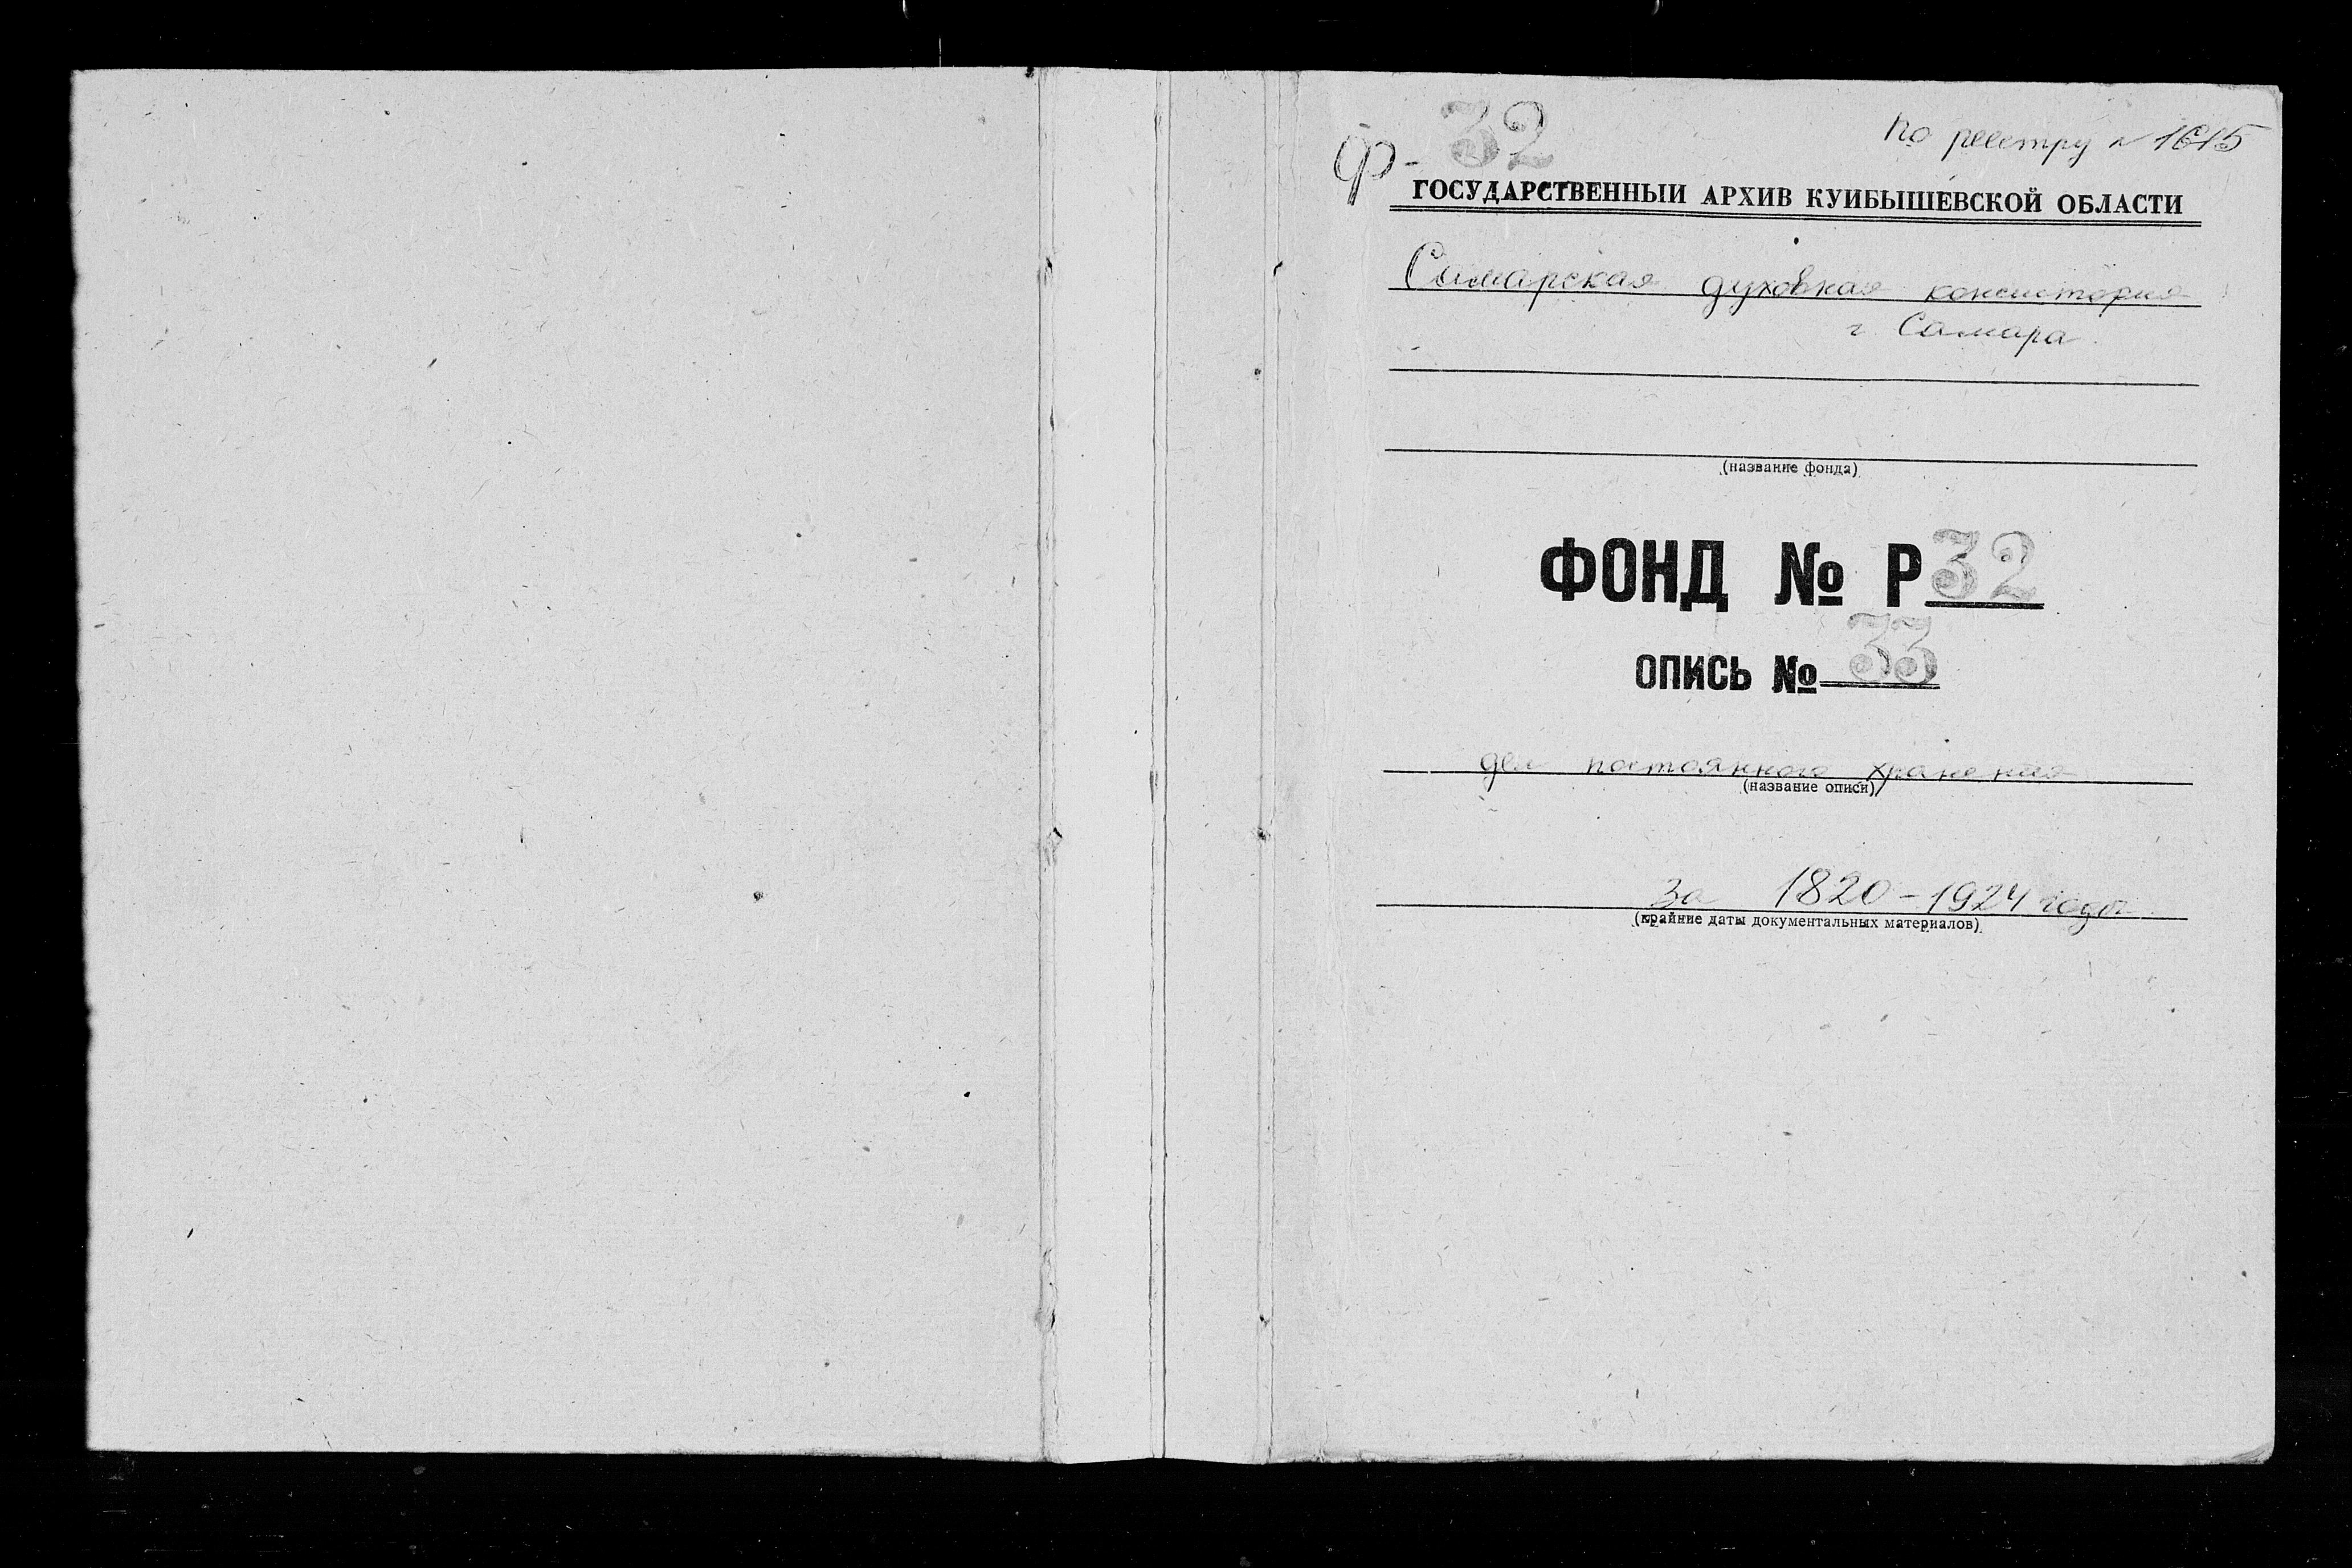 ф-32
По реестру № 1615
ГОСУДАРСТВЕННЫЙ АРХИВ КУЙБЫШЕВСКОЙ ОБЛАСТИ
Самарская духовная консистория
г. Самара
(название фонда)
ФОНД № Р32
ОПИСЬ № 33
дел постоянного хранения
(название описи)
за 1820-1924 годы
(крайние даты документальных материалов)